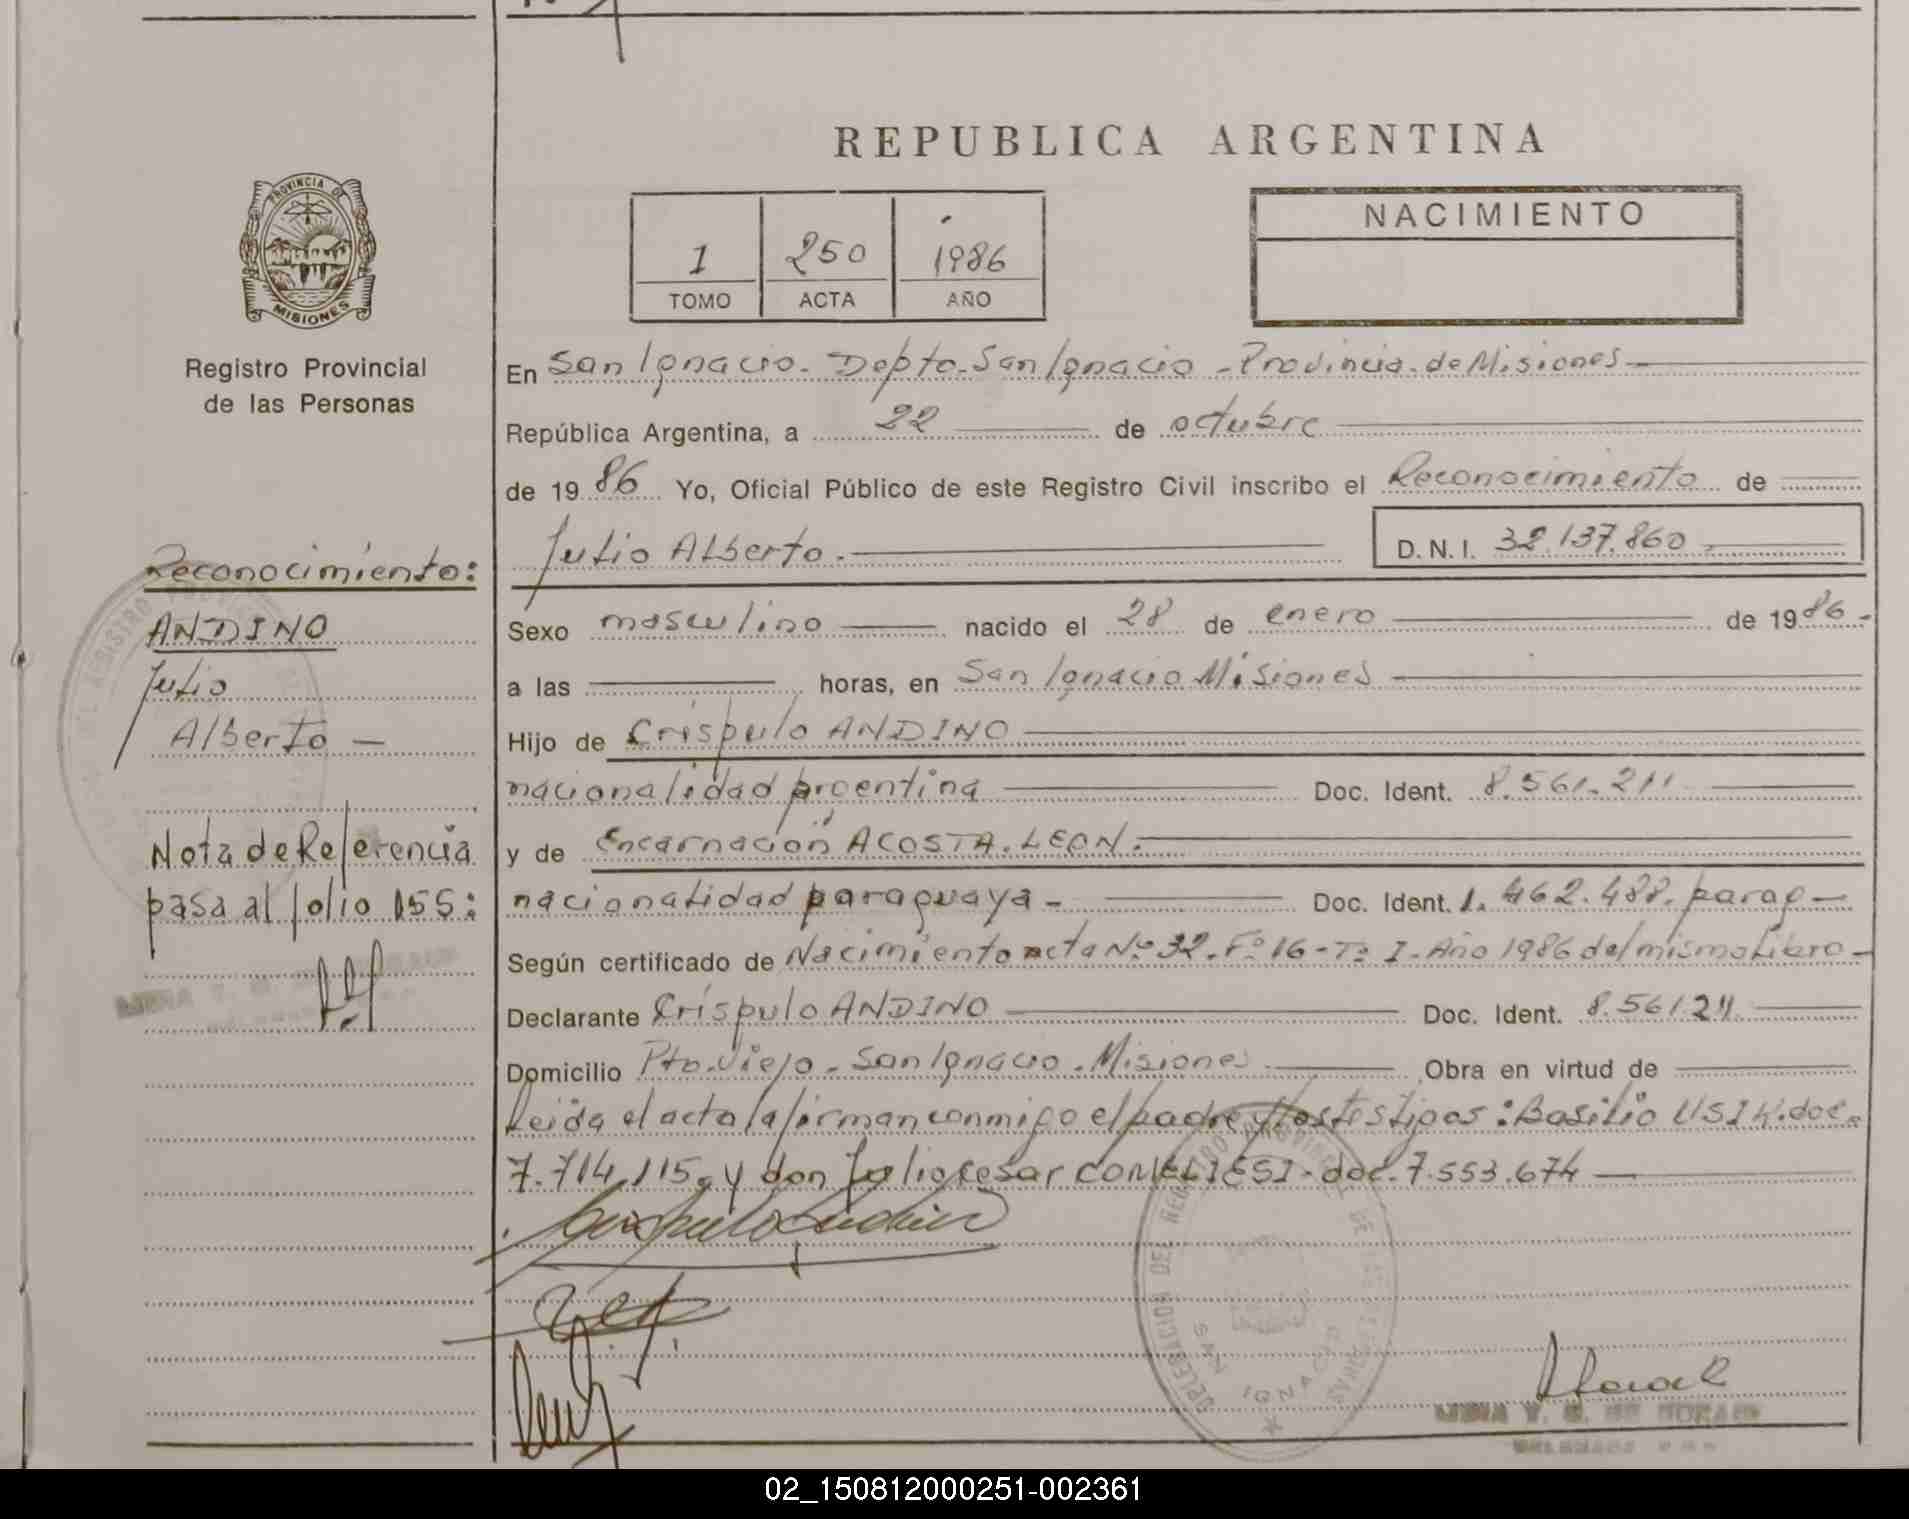 REPUBLICA ARGENTINA
PROVINCIA DE
MISIONES
Registro Provincial
de las Personas
1 250 1986
TOMO ACTA AÑO
NACIMIENTO
En San Ignacio. Depto. San Ignacio - Provincia de Misiones
República Argentina, a 22 de octubre
de 1986 Yo, Oficial Público de este Registro Civil inscribo el Reconocimiento de
Julio Alberto. D.N.I. 32.137.860
Sexo masculino nacido el 28 de enero de 1986
a las horas, en San Ignacio Misiones
Hijo de Críspulo ANDINO
nacionalidad argentina Doc. Ident. 8.561.211
y de Encarnación ACOSTA LEON.
nacionalidad paraguaya - Doc. Ident. 1.462.488. parag -
Según certificado de Nacimiento acta Nº 32. Fº 16 - Tº I. Año 1986 del mismo Libro
Declarante Críspulo ANDINO Doc. Ident. 8.561.211
Domicilio Pto. Viejo - San Ignacio. Misiones Obra en virtud de
Leida el acta la firman conmigo el padre y los testigos: Basilio USIK. doc.
7.714.115, y don Julio Cesar doc. 7.553.674
Reconocimiento:
ANDINO
Julio
Alberto -
Nota de Referencia
pasa al folio 155:
DELEGACION DEL REGISTRO PROVINCIAL DE LAS PERSONAS
SAN IGNACIO
02_150812000251-002361